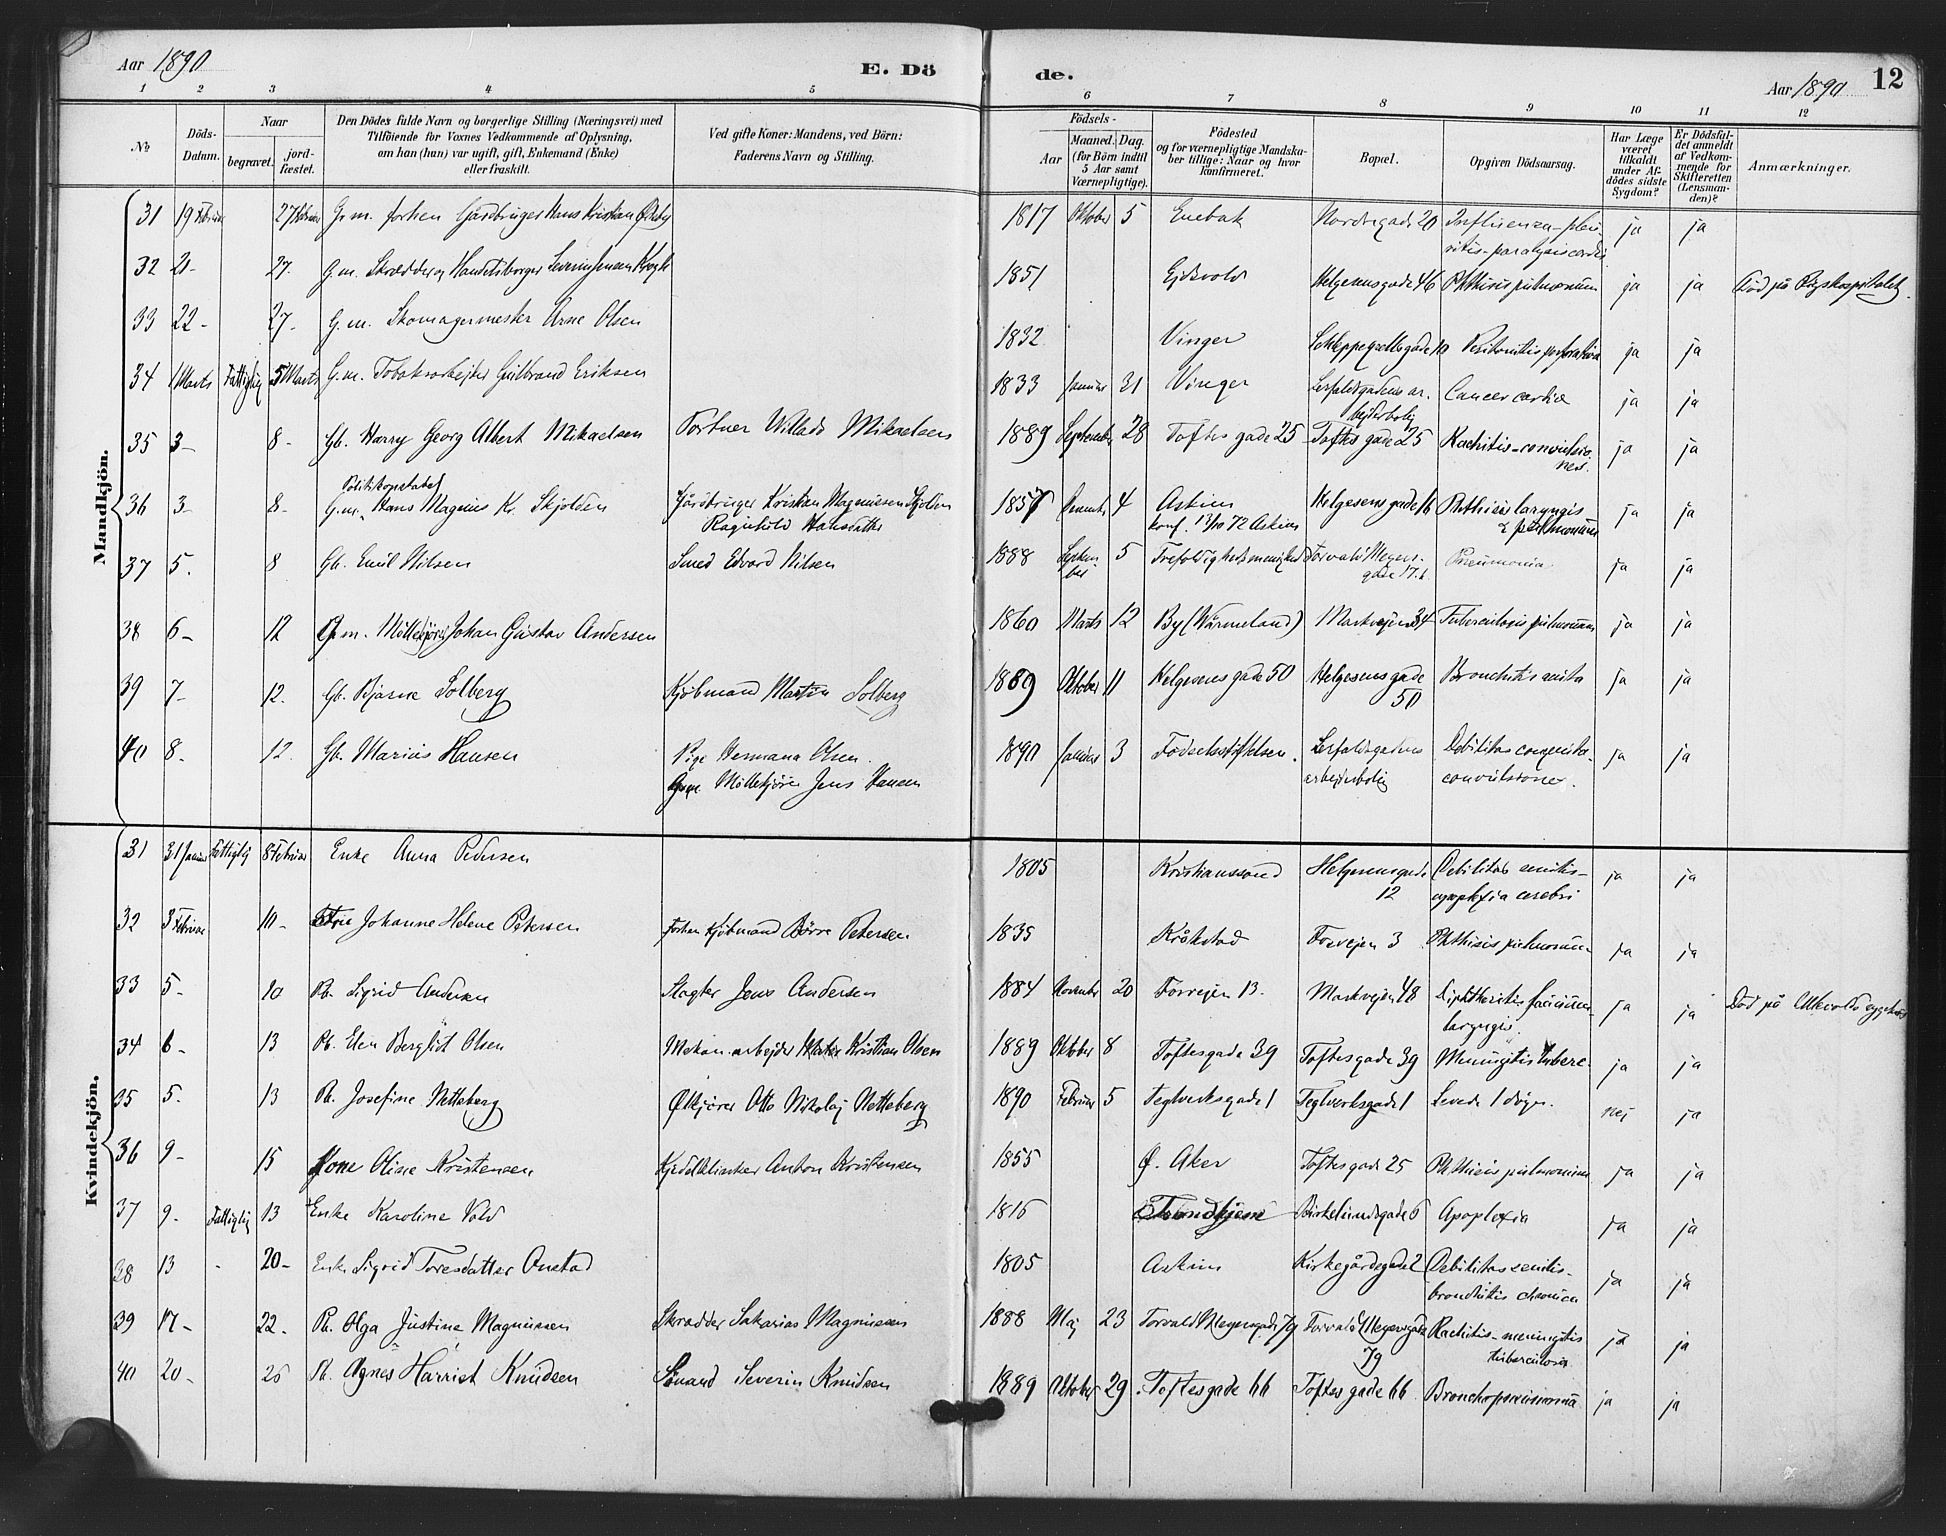 Aar 1890
E. Dö
de.
Aar 1890
12
1 2 3 4 5 6 7 8 9 10 11 12
No
Döds-Datum.
Naar
begravet.
jord-fæstet.
Den Dödes fulde Navn og borgerlige Stilling (Næringsvei) med
Tilföiende for Voxnes Vedkommende af Oplysning,
om han (hun) var ugift, gift, Enkemand (Enke)
eller fraskilt.
Ved gifte Koner: Mandens, ved Börn:
Faderens Navn og Stilling.
Födsels-
Aar
Maaned. Dag.
(for Börn indtil
5 Aar samt
Værnepligtige).
Födested
og for værnepligtige Mandska-
ber tillige: Naar og hvor
konfirmeret.
Bopæl.
Opgiven Dödsaarsag.
Har Læge
været
tilkaldt
under Af-
dödes sidste
Sygdom?
Er Dödsfal-
det anmeldt
af Vedkom-
mende for
Skifteretten
(Lensman-
den)?
Anmærkninger.
Mandkjön.
31 19 Februar 27 Februar G.m. forhen Gårdbruger Hans Kristian 1817 Oktober 5 Enebak Nordregade 20 Influenza-pleu-
ritis-paralysis cordis ja ja
32 21- 27- G.m. Skrædder og Handelsborger Severin Jensen Krogh 1851 Ejdsvold Helgesensgade 46 Phthisis pulmonum ja ja Död på Rigshospitalet.
33 22- 27- G.m. Skomagermester Arne Olsen 1832 Vinger Schleppegrellsgade 10 Peritonitis perforativa ja ja
34 1 Marts Fattiglig 5 Marts G.m. Tobaksarbejder Gulbrand Eriksen 1833 Januar 21 Vinger Lerfaldsgadens ar-
bejderbolig Cancer cardiæ ja ja
35 3- 8- Gb. Harry Georg Albert Mikaelsen Portner Willads Mikaelsen 1889 September 28 Toftes gade 25 Toftes gade 25 Rachitis-convulsio-
nes. ja ja
Politikonstabel
36 3- 8- G.m. Hans Magnus Kr. Skjolden Gårdbruger Kristian Magnussen Skjolden
Ragnhild Hansdatter 1857 4 Askim
konf. 13/10 72 Askim Helgesensgade 16 Phthisis laryngis
& pulmonum ja ja
37 5. 8 Gb. Emil Nilsen Smed Edvard Nilsen 1888 Septem-
ber 5 Trefoldighedsmenighed Torvald Meyers-
gade 17.b. Pneumonia ja ja
38 6- 12 G.m. Möllekjörer Johan Gustav Andersen 1860 Marts 12 By (Wärmeland) Markvejen 34 Tuberculosis pulmonum ja ja
39 7- 12. Gb. Bjarne Solberg Kjöbmand Martin Solberg 1889 Oktober 11 Helgesens gade 50 Helgesens gade
50 Bronchitis acuta ja ja
40 8. 12. Gb. Marius Hansen Pige Hermana Olsen.
Möllekjörer Jens Hansen 1890 Januar 3 Födselsstiftelsen. Lerfaldsgadens
arbejderbolig Debilitas congenita-
convulsiones. ja ja
Kvindekjön.
31 31 Januar Fattiglig 8 Februar Enke Anna Pedersen 1805 Kristianssand Helgesensgade
12 Debilitas senilis-
apoplexia cerebri ja ja
32 3 Februar 10- Johanne Helene Petersen Forhen Kjöbmand Börre Petersen 1835 Kråkstad Fosvejen 3 Phthisis pulmonum ja ja
33 5- 10 Pb. Sigrid Andersen Slagter Jens Andersen 1884 November 20 Fosvejen 13. Markvejen 48 Diphtheritis faucium-
laryngis. ja ja Död på Ullevold sygehus
34 6- 13 Pb. Elen Bergliot Olsen Mekan. arbejder Kristian Olsen 1889 Oktober 8 Toftesgade 39 Toftesgade 39 Meningitis tuberc. ja ja
35 5. 13 Pb. Josefine Netteberg Ølkjörer Otto Nikolaj Netteberg 1890 Februar 5 Teglverksgade 1 Teglverksgade 1 Levede 1 dögn. nej ja
36 9- 15 Kone Oline Kristensen Kjedelklinker Anton Kristensen 1855 Ø. Aker Toftesgade 25 Phthisis pulmonum ja ja
37 9. Fattiglig 13 Enke Karoline Vold 1815 Trondhjem Birkelundsgade 6 Apoplexia ja ja
38 13 - 20- Enke Sigrid Toresdatter Onstad 1805 Askim Kirkegårdsgade 2 Debilitas senilis-
bronchitis chronica ja ja
39 17- 22- Pb. Olga Justine Magnussen Skrædder Sakarias Magnussen 1888 Maj 23 Torvald Meyersgade 79 Torvald Meyersgade
79 Rachitis-meningitis
tuberculosa ja ja
40 20- 26 Pb. Agnes Harriet Knudsen Severin Knudsen 1889 Oktober 29 Toftesgade 66 Toftes gade 66 Bronchopneumonia ja ja